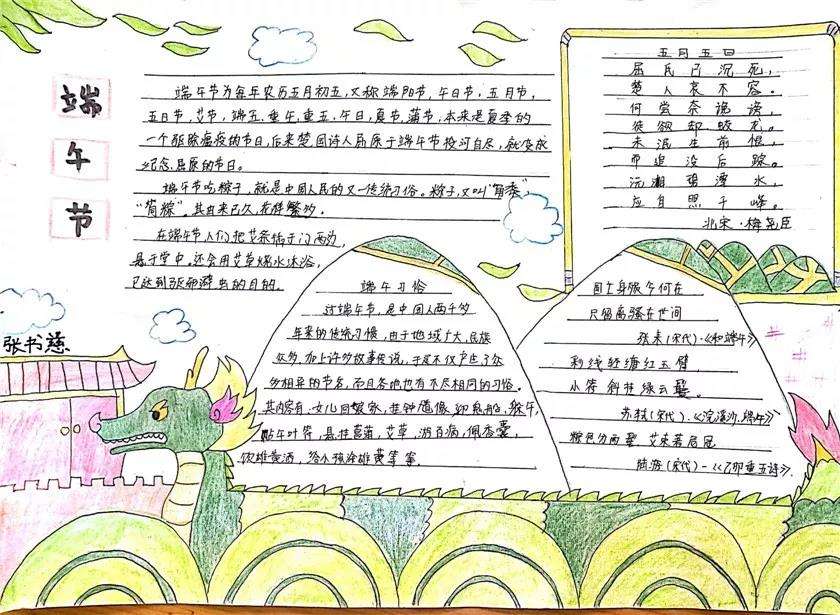 端
午
节
端午节为每年农历五月初五,又称端阳节,午日节,五月节,
五日节,艾节,端五,重午,重五,午日,夏节,蒲节,本来是夏季的
一个驱除瘟疫的节日,后来楚国诗人屈原于端午节投河自尽,就变成
纪念屈原的节日。
端午节吃粽子,就是中国人民的又一传统习俗。粽子,又叫“角黍”,
“筒粽”。其由来已久,花样繁多。
在端午节人们把艾条插于门两边,
悬于堂中,还会用艾草烧水沐浴,
又达到驱邪避虫的目的。
五月五日
屈氏已沉死,
楚人哀不容。
何尝奈谗谤,
徒欲却蛟龙。
未泯生前恨,
而追没后踪。
沅湘碧潭水,
应自照千峰。
北宋·梅尧臣
张书慈
端午习俗
过端午节,是中国人两千多
年来的传统习惯,由于地域广大,民族
众多,加上许多故事传说,于是不仅产生了众
多相异的节名,而且各地也有不尽相同的习俗。
其内容有:女儿回娘家,挂钟馗像,迎鬼船,躲午,
贴午叶符,悬挂菖蒲,艾草,游百病,佩香囊,
饮雄黄酒,给小孩涂雄黄等等.
国士身殁今何在
只留离骚在世间
张耒(宋代)·《和端午》
彩线轻缠红玉臂,
小符斜挂绿云鬟。
苏轼(宋代)·《浣溪沙·端午》
粽包分两髻 艾束著危冠
陆游(宋代)-《乙卯重五诗》.